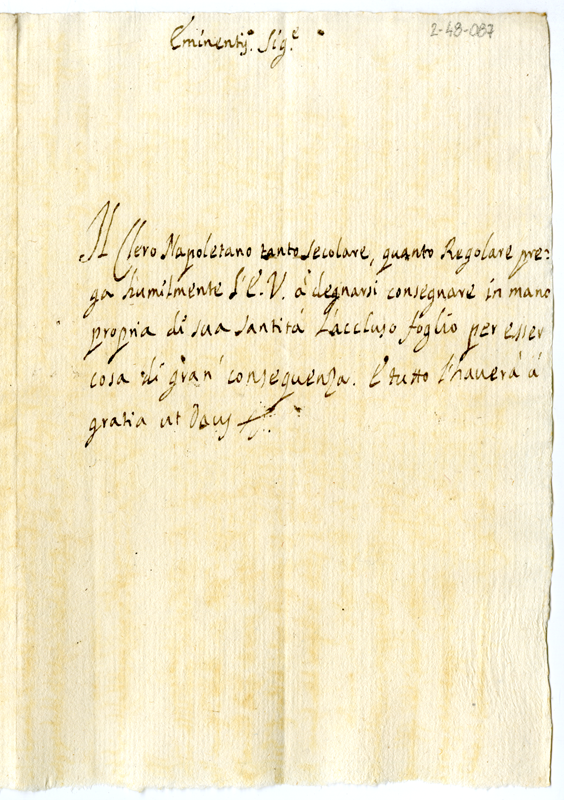 2-48-087
Eminentis.o Sig.e
Il Clero Napoletano tanto secolare, quanto Regolare pre-
ga humilmente l'E.V. à degnarsi consegnare in mano
propria di sua santità l'accluso foglio per esser
cosa di gran consequenza. E tutto l'haverà à
gratia ut Deus